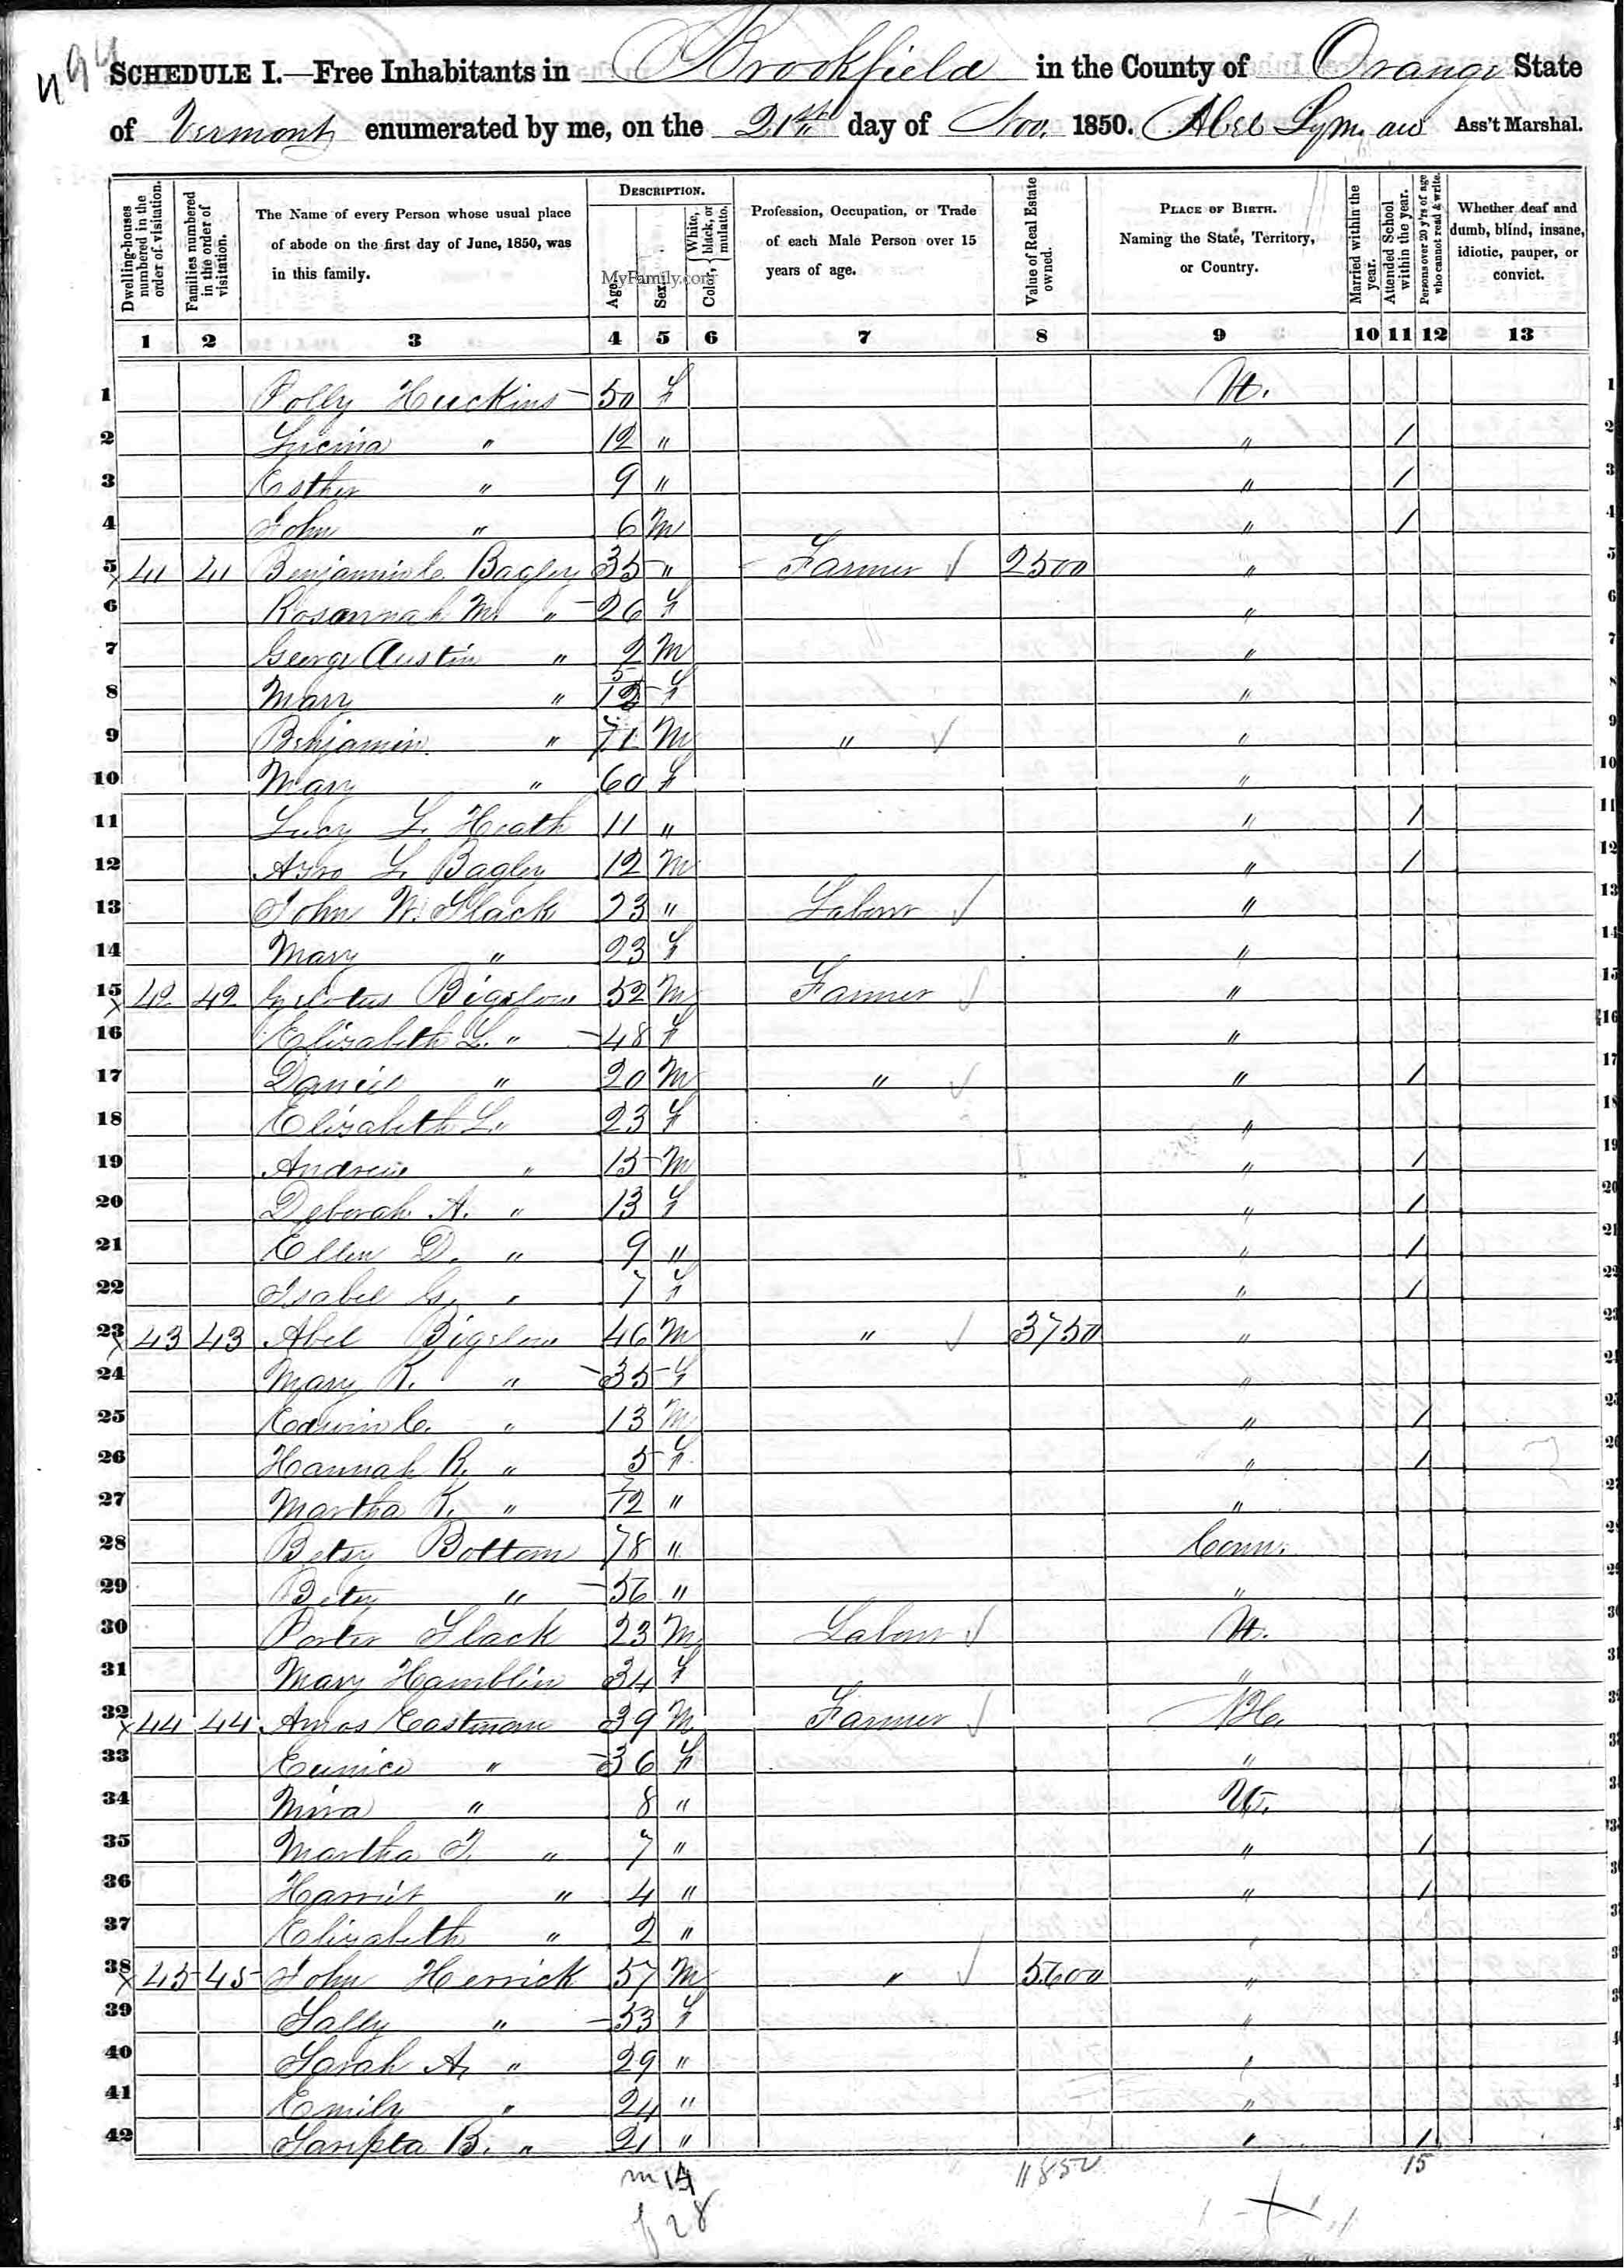 494
SCHEDULE I.—Free Inhabitants in Brookfield in the County of Orange State
of Vermont enumerated by me, on the 21st day of Nov. 1850. Abel Lyman Ass't Marshal.
Dwelling-houses numbered in the order of visitation.
Families numbered in the order of visitation.
The Name of every Person whose usual place of abode on the first day of June, 1850, was in this family.
DESCRIPTION.
Age.
Sex.
Color, { White, black, or mulatto.
Profession, Occupation, or Trade of each Male Person over 15 years of age.
Value of Real Estate owned.
PLACE OF BIRTH. Naming the State, Territory, or Country.
Married within the year.
Attended School within the year.
Persons over 20 y'rs of age who cannot read & write.
Whether deaf and dumb, blind, insane, idiotic, pauper, or convict.
MyFamily.com
1 2 3 4 5 6 7 8 9 10 11 12 13
1 Polly Huckins 50 f Vt. 1
2 Lucina " 12 " " / 2
3 Esther " 9 " " / 3
4 John " 6 M " / 4
5 41 41 Benjamin C. Bagley 35 " Farmer ✓ 2500 " 5
6 Rosannah M. " 26 f " 6
7 George Austin " 2 M " 7
8 Mary " 5/12 f "
9 Benjamin " 71 M " ✓ " 9
10 Mary " 60 f " 10
11 Lucy L. Heath 11 " " / 11
12 Azro L. Bagley 12 M " / 12
13 John W. Slack 23 " Labour ✓ " 13
14 Mary " 23 f " 14
15 x 42 42 Bigelow 52 M Farmer ✓ " 15
16 Elizabeth L. " 48 f " 16
17 Daniel " 20 M " ✓ " / 17
18 Elizabeth L. " 23 f " 18
19 Andrew " 15 M " / 19
20 Deborah A. " 13 f " / 20
21 Ellen D. " 9 " " / 21
22 Isabel G. " 7 f " / 22
23 x 43 43 Abel Bigelow 46 M " ✓ 3750 " 23
24 Mary R. " 35 f "
25 Edwin C. " 13 M " /
26 Hannah R. " 5 f " /
27 Martha K. " 7/12 " "
28 Betsy Bottom 78 " Conn.
29 Betsy " 56 " "
30 Porter Slack 23 M Labour ✓ Vt.
31 Mary Hamblin 34 f "
32 x 44 44 Amos Eastman 39 M Farmer ✓ N.H.
33 Eunice " 36 f "
34 Mira " 8 " Vt.
35 Martha " 7 " " /
36 Harriet " 4 " " /
37 Elizabeth " 2 " "
38 x 45 45 John Herrick 57 M " ✓ 5600 "
39 Sally " 53 f "
40 Sarah A. " 29 " "
41 Emily " 24 " "
42 Saripta B. " 21 " " /
m 14 11850 15
f 28